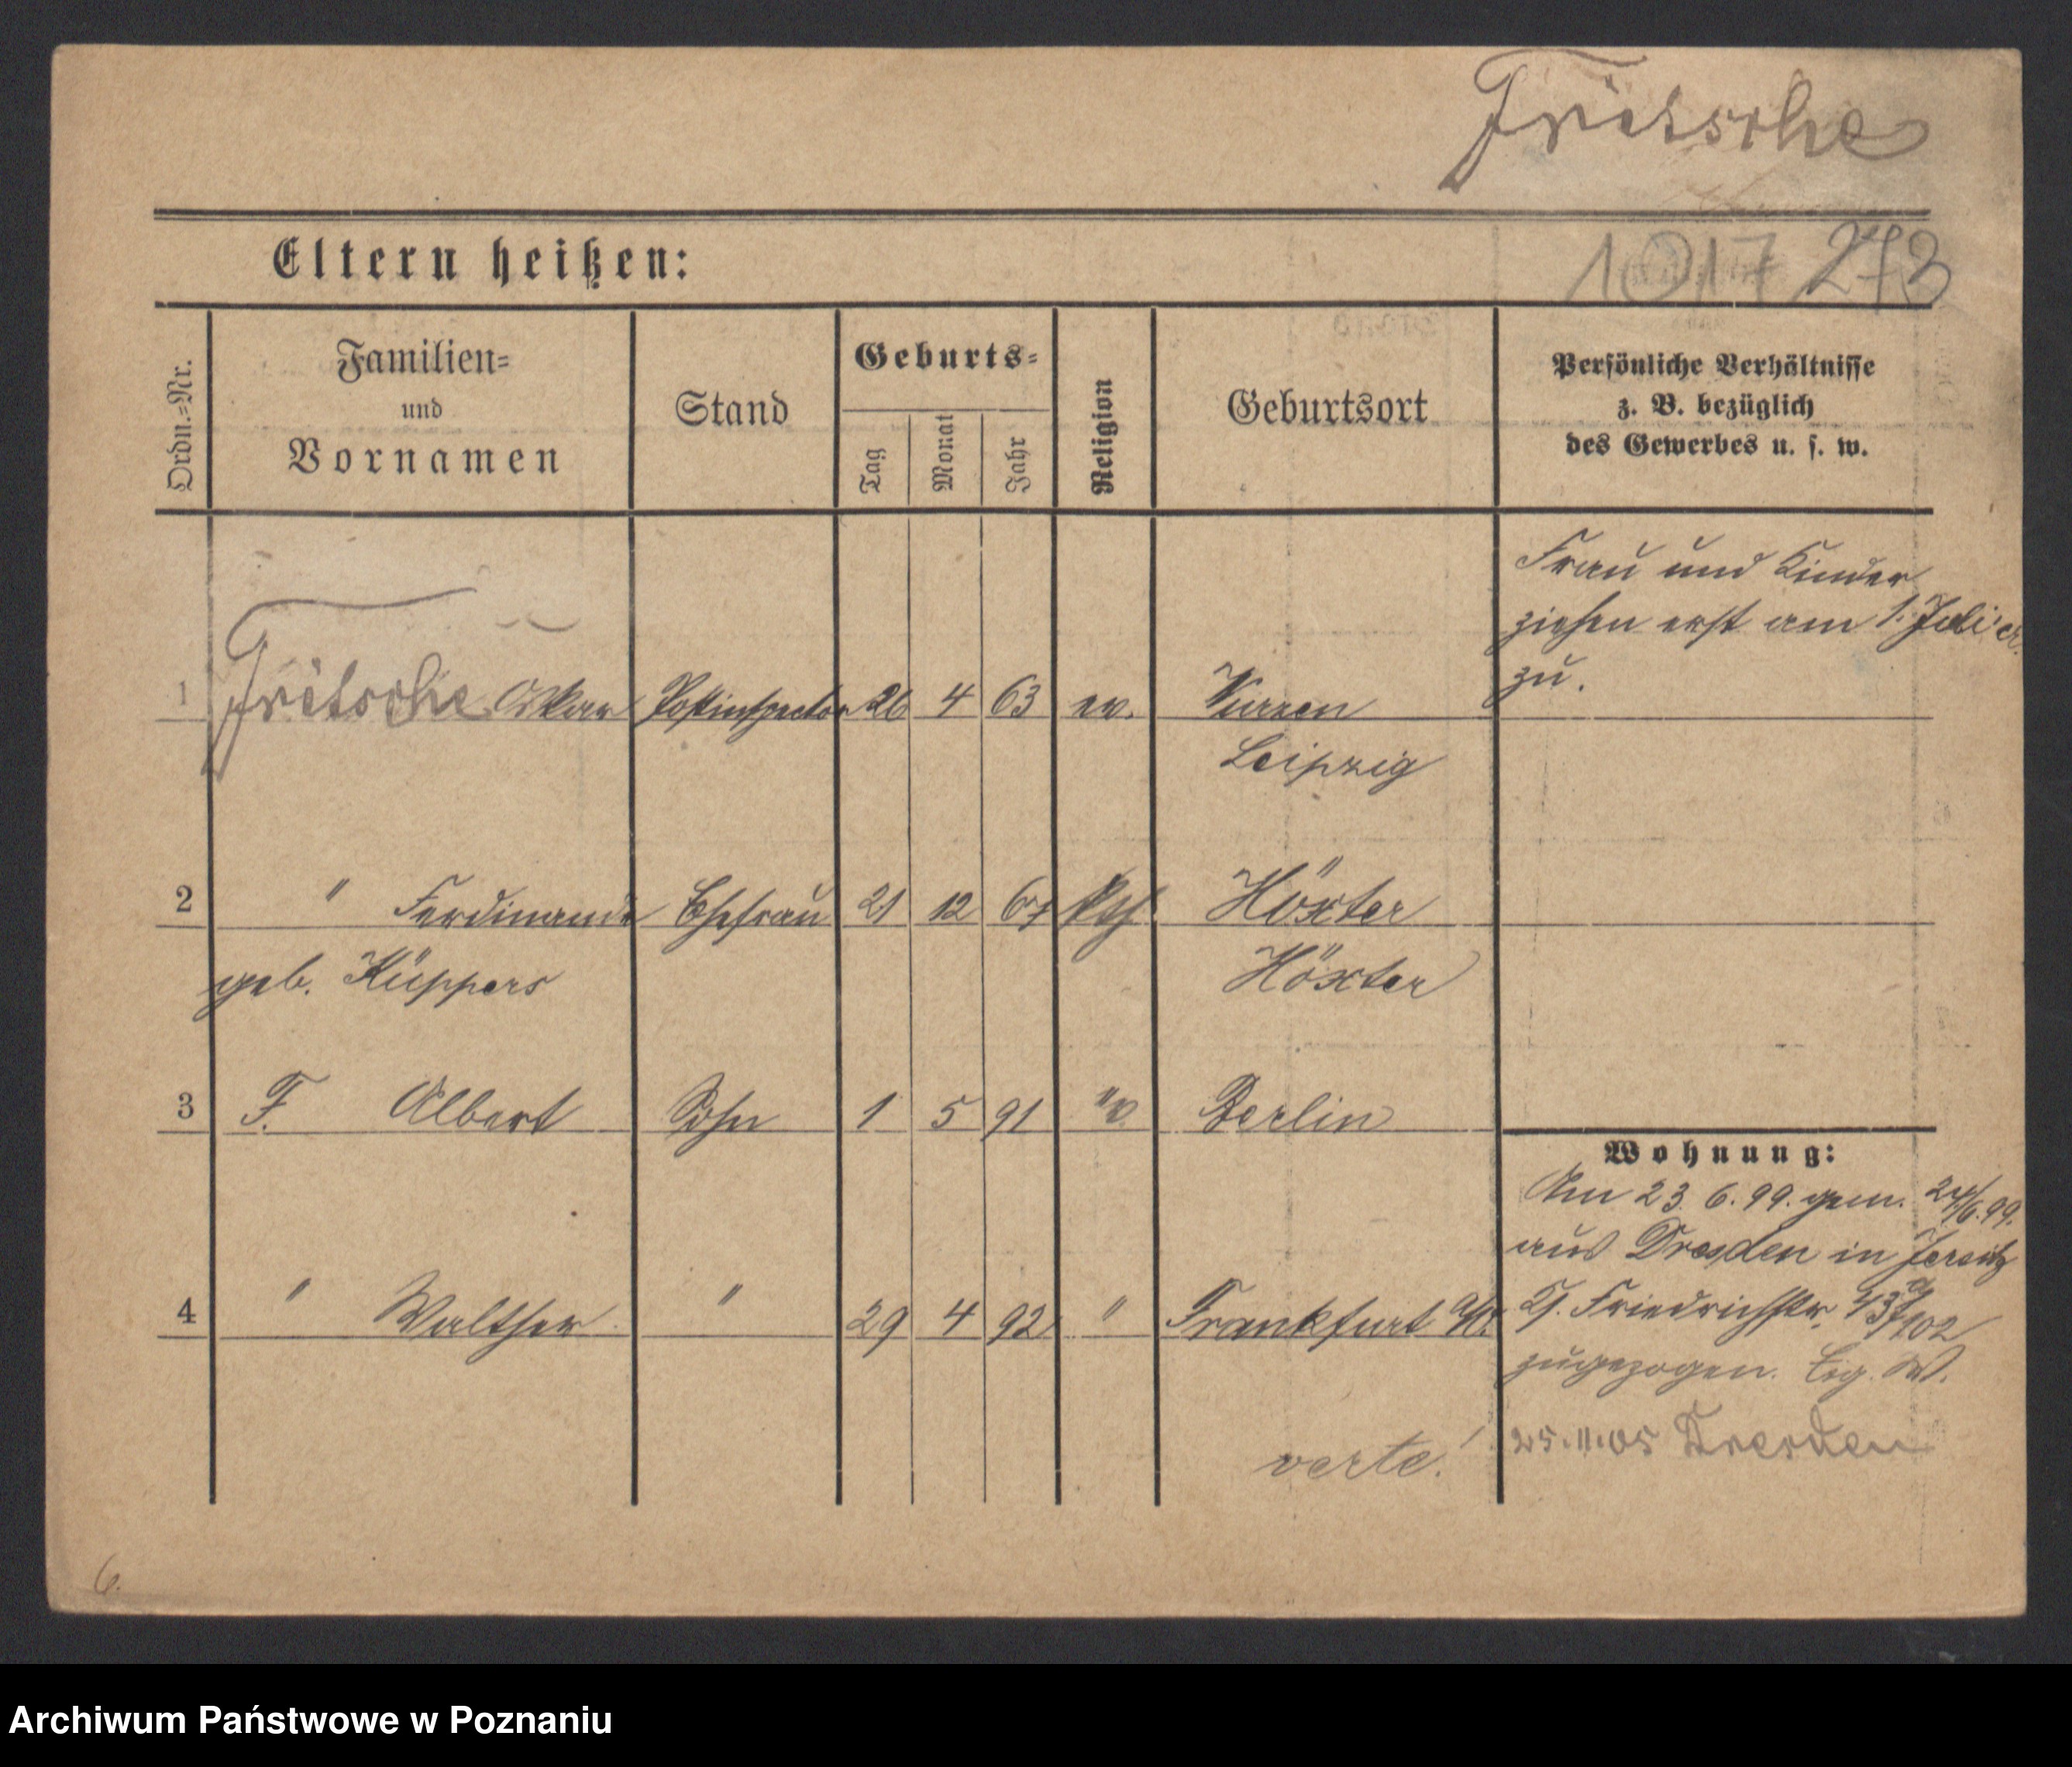 Fritsche
Eltern heißen:
1017 273
Ordn.-Nr.
Familien-
und
Vornamen
Stand
Geburts-
Tag
Monat
Jahr
Religion
Geburtsort
Persönliche Verhältnisse
z. B. bezüglich
des Gewerbes u. s. w.
Frau und Kinder
ziehen erst am 1. Juli cr.
zu.
1 Fritsche Oskar Postinspector 26 4 63 ev. Wurzen
Leipzig
2 " Ferdinande Ehefrau 21 12 67 kth. Höxter
geb. Küppers Höxter
3 F. Albert Sohn 1 5 91 ev. Berlin
Wohnung:
Am 23. 6. 99. gem. 24/6. 99.
aus Dresden in Jersitz
4 " Walther " 29 4 92 " Frankfurt a/O.
Gr. Friedrichstr.
zugezogen.
25.11.05 Dresden
verte!
6.
Archiwum Państwowe w Poznaniu